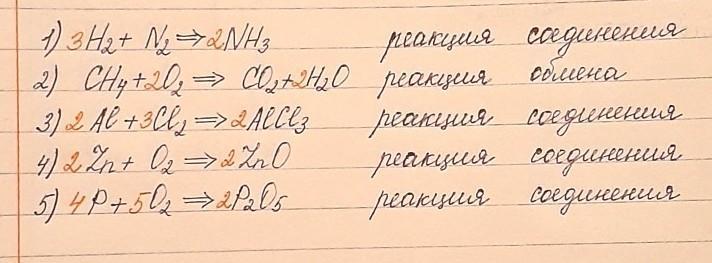 1) 3H₂ + N₂ ⇒ 2NH₃ реакция соединения
2) CH₄ + 2O₂ ⇒ CO₂ + 2H₂O реакция обмена
3) 2Al + 3Cl₂ ⇒ 2AlCl₃ реакция соединения
4) 2Zn + O₂ ⇒ 2ZnO реакция соединения
5) 4P + 5O₂ ⇒ 2P₂O₅ реакция соединения